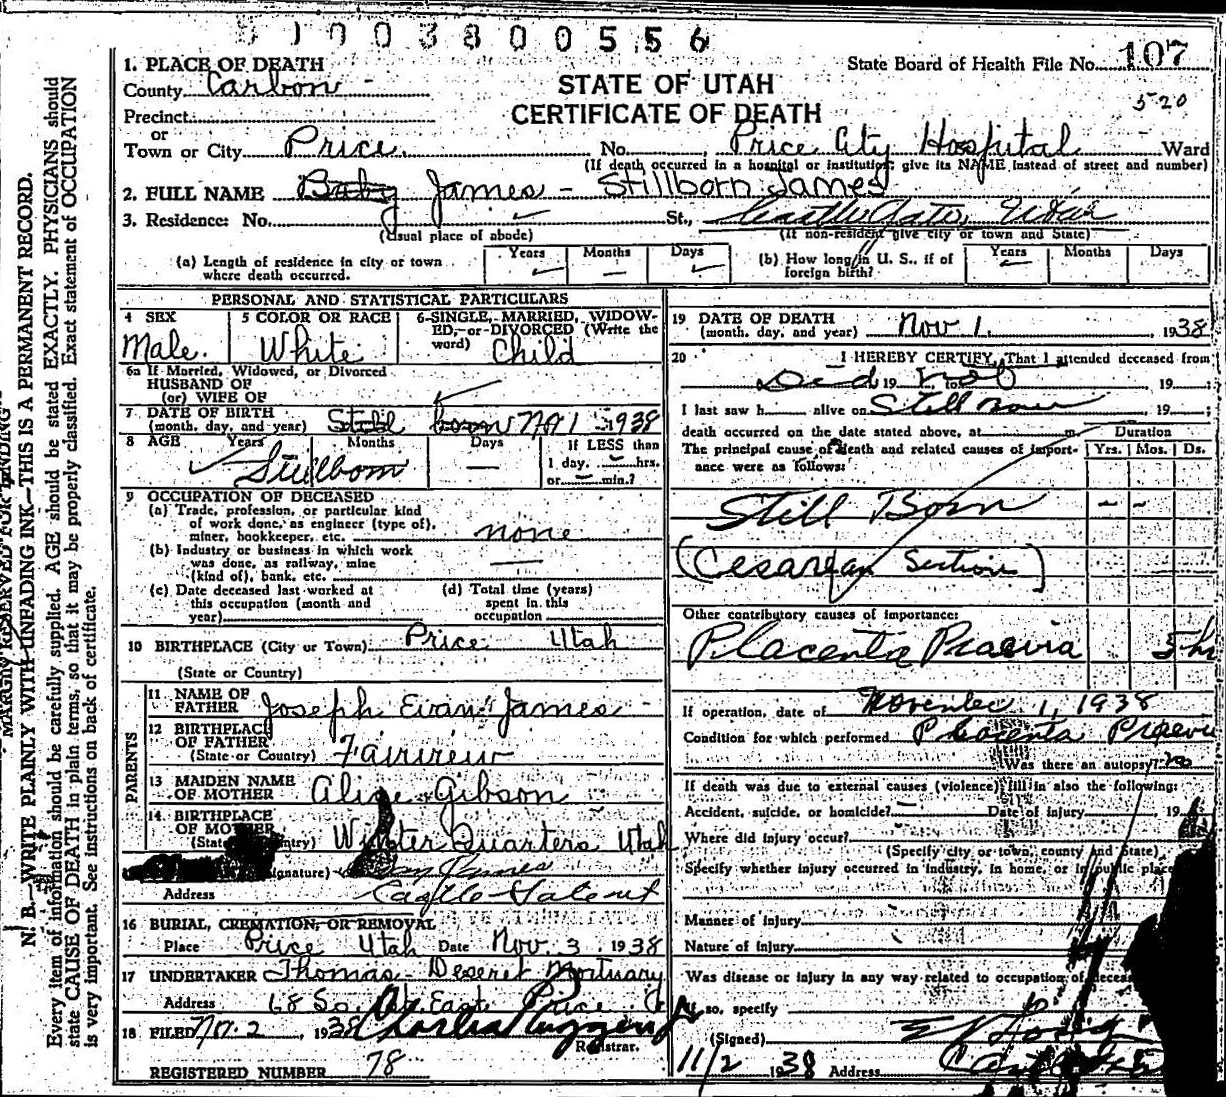 1003800556
1. PLACE OF DEATH
County Carbon
STATE OF UTAH
CERTIFICATE OF DEATH
State Board of Health File No. 107
520
Precinct
or
Town or City Price No. Price City Hospital Ward
(If death occurred in a hospital or institution, give its NAME instead of street and number)
2. FULL NAME Baby James - Stillborn James
3. Residence: No. St., Castle Gate, Utah
(Usual place of abode) (If non-resident give city or town and State)
(a) Length of residence in city or town where death occurred. Years Months Days
(b) How long in U. S., if of foreign birth? Years Months Days
PERSONAL AND STATISTICAL PARTICULARS
4 SEX Male.
5 COLOR OR RACE White
6-SINGLE, MARRIED, WIDOWED, or DIVORCED (Write the word) Child
6a If Married, Widowed, or Divorced
HUSBAND OF
(or) WIFE OF
7 DATE OF BIRTH
(month, day, and year) Still born 1938
8 AGE Years Months Days If LESS than
Stillborn 1 day, hrs.
or min.?
9 OCCUPATION OF DECEASED
(a) Trade, profession, or particular kind
of work done, as engineer (type of),
miner, bookkeeper, etc. none
(b) Industry or business in which work
was done, as railway, mine
(kind of), bank, etc.
(c) Date deceased last worked at
this occupation (month and
year)
(d) Total time (years)
spent in this
occupation
10 BIRTHPLACE (City or Town) Price Utah
(State or Country)
PARENTS
11 NAME OF
FATHER Joseph Evan James
12 BIRTHPLACE
OF FATHER
(State or Country) Fairview
13 MAIDEN NAME
OF MOTHER Alice Gibson
14 BIRTHPLACE
OF MOTHER Winter Quarters Utah
(Signature) James
Address Castle Gate ut
16 BURIAL, CREMATION, OR REMOVAL
Place Price Utah Date Nov. 3, 1938
17 UNDERTAKER Thomas - Deseret Mortuary
Address 68 So. East Price
18 FILED 2, 1938
Registrar.
REGISTERED NUMBER 78
19 DATE OF DEATH
(month, day, and year) Nov 1. 1938
20 I HEREBY CERTIFY, That I attended deceased from
Did 19 to not 19 ;
I last saw h alive on Still born 19 ;
death occurred on the date stated above, at m. Duration
The principal cause of death and related causes of importance were as follows: Yrs. Mos. Ds.
Still Born
(Cesarean Section)
Other contributory causes of importance:
Placenta Praevia 5 hr
If operation, date of November 1, 1938
Condition for which performed Placenta Praevia
Was there an autopsy? no
If death was due to external causes (violence) fill in also the following:
Accident, suicide, or homicide? Date of injury 19
Where did injury occur?
(Specify city or town, county and State)
Specify whether injury occurred in industry, in home, or in public place
Manner of injury
Nature of injury
Was disease or injury in any way related to occupation of deceased
If so, specify
(Signed)
11/2 1938 Address
MARGIN RESERVED FOR BINDING
N. B.—WRITE PLAINLY WITH UNFADING INK—THIS IS A PERMANENT RECORD.
Every item of information should be carefully supplied. AGE should be stated EXACTLY. PHYSICIANS should
state CAUSE OF DEATH in plain terms, so that it may be properly classified. Exact statement of OCCUPATION
is very important. See instructions on back of certificate.